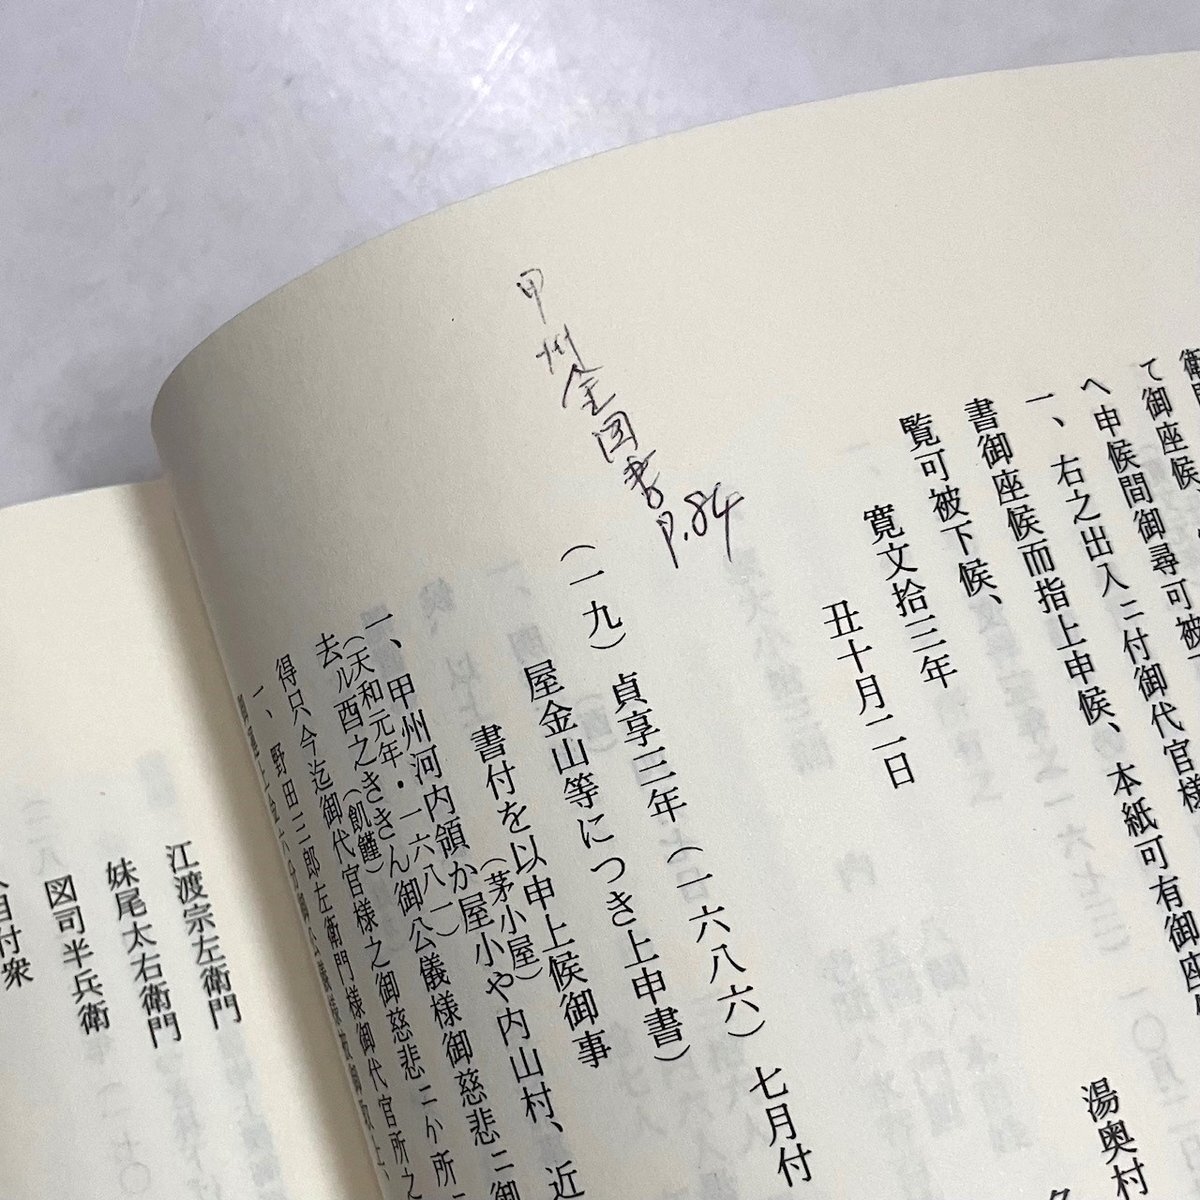 て御座候、
へ申候間御尋可被下
一、右之出入ニ付御代官様
書御座候而指上申候、本紙可有御座
覧可被下候、
寛文拾三年
丑十月二日
湯奥村
甲州金図書P.84
(一九) 貞享三年(一六八六)七月付
屋金山等につき上申書)
書付を以申上候御事
(茅小屋)
一、甲州河内領か屋小や内山村、近
(天和元年・一六八一)
(飢饉)
去ル酉之ききん御公儀様御慈悲ニ御
得只今迄御代官様之御慈悲ニか所
一、野田三郎左衛門様御代官所之
江渡宗左衛門
妹尾太右衛門
図司半兵衛
目付衆